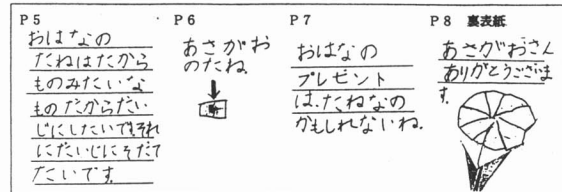 P5
おはなの
たねはたから
ものみたいな
ものだからだい
じにしたいです。それ
にだいじにそだて
たいです
P6
あさがお
のたね。
P7
おはなの
プレゼント
は、たねなの
かもしれないね。
P8 裏表紙
あさがおさん
ありがとうございま
す。